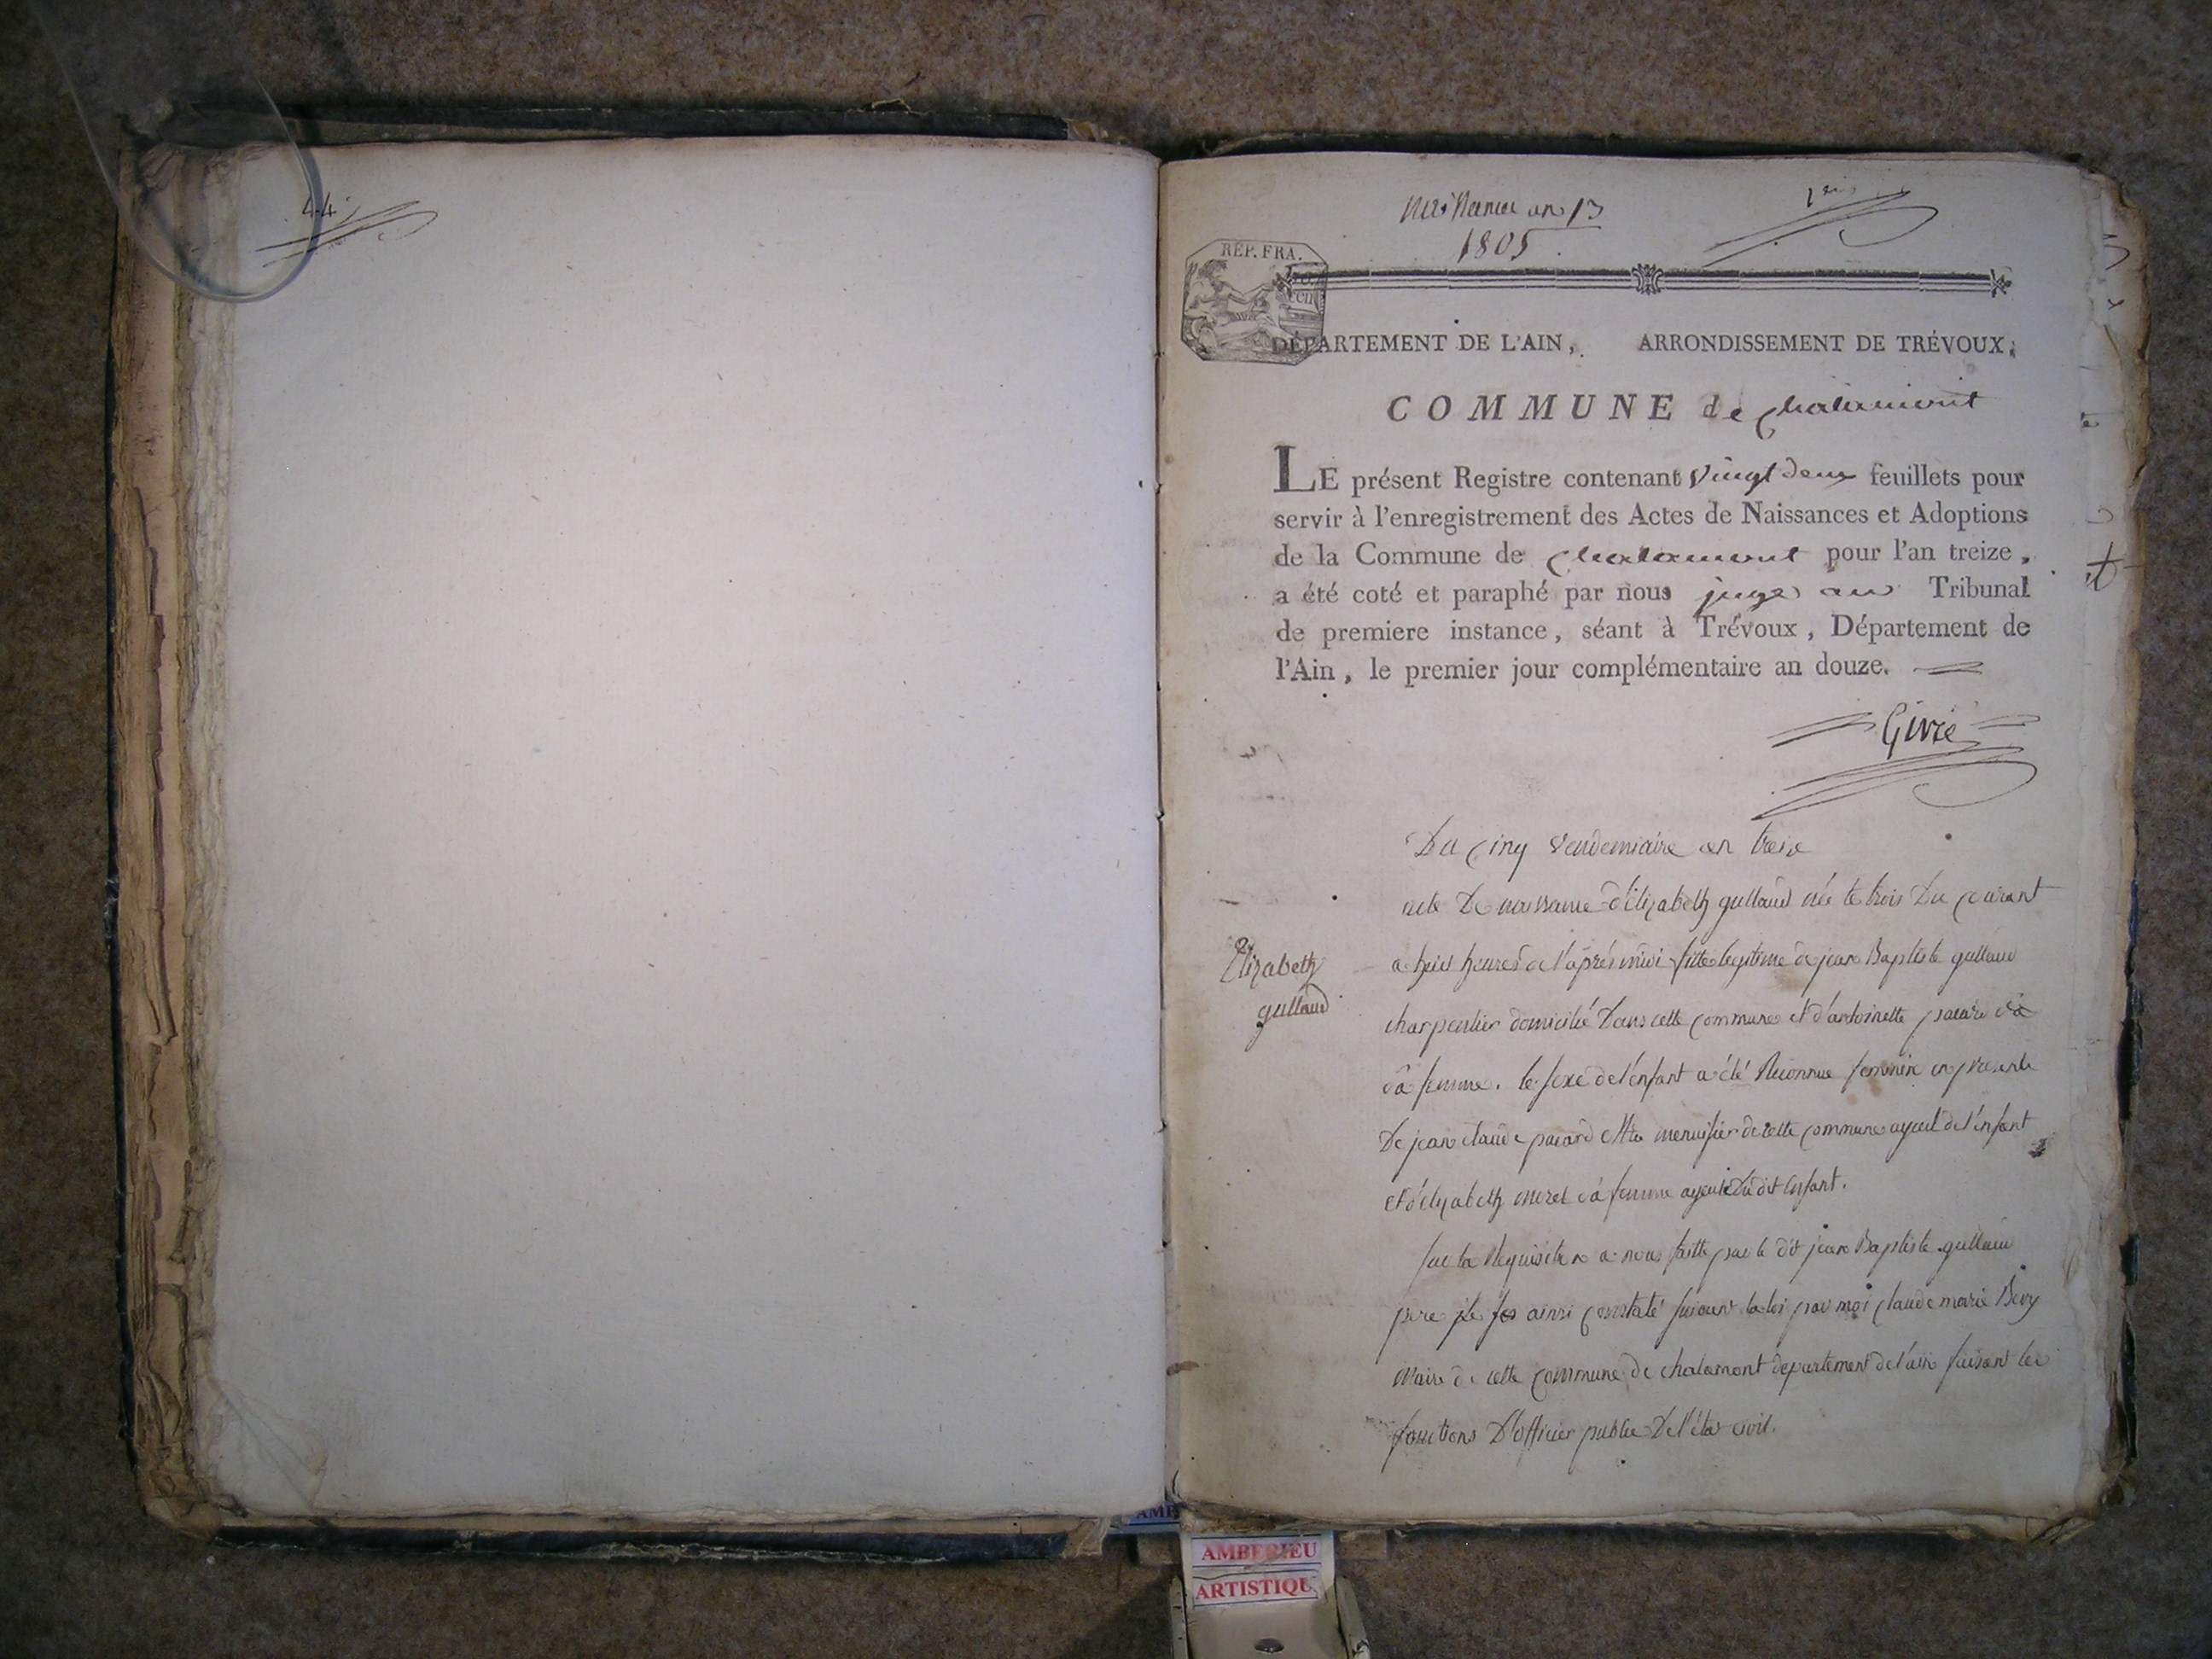 44
Naissances an 13
1805.
1er
REP. FRA.
DÉPARTEMENT DE L'AIN, ARRONDISSEMENT DE TRÉVOUX,
COMMUNE de chalamont
LE présent Registre contenant vingt deux feuillets pour
servir à l'enregistrement des Actes de Naissances et Adoptions
de la Commune de chalamont pour l'an treize,
a été coté et paraphé par nous juge au Tribunal
de premiere instance, séant à Trévoux, Département de
l'Ain, le premier jour complémentaire an douze.
Givre
Du cinq vendemiaire an treize
acte De naissance d'élizabeth gullaud née le trois Du courant
Elizabeth
gullaud
a heures de l'aprés midi fille legitime de jean Baptiste gullaud
charpentier domicilié Dans cette commune et d'antoinette
sa femme. le sexe de l'enfant a été Reconnue feminin en presence
De jean claude pacard menuisier de cette commune ayeul de l'enfant
et d'elizabeth morel sa femme ayeule Du dit Enfant.
sur la Requisition a nous faitte par le dit jean Baptiste gullaud
pere ainsi constaté suivant la loi par moi claude marie
Maire de cette commune de chalamont departement de l'ain faisant les
fonctions D'officier public De l'état civil.
AMBERIEU
ARTISTIQU